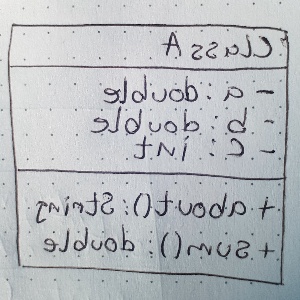 ClassA
- a: double
- b: double
- c: int
+ about(): String
+ sum(): double